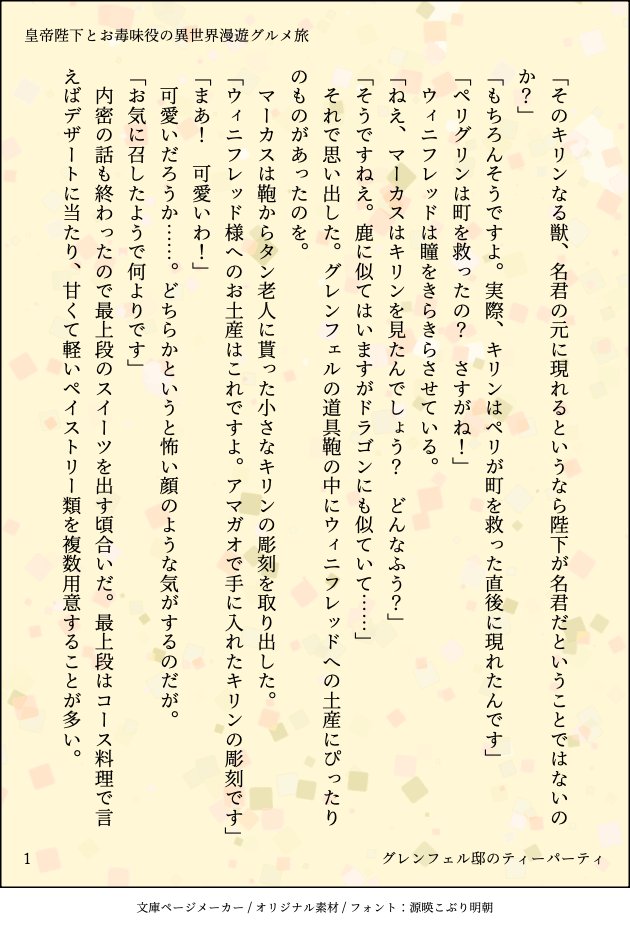 皇帝陛下とお毒味役の異世界漫遊グルメ旅
「そのキリンなる獣、名君の元に現れるというなら陛下が名君だということではないの
か？」
「もちろんそうですよ。実際、キリンはペリが町を救った直後に現れたんです」
「ペリグリンは町を救ったの？　さすがね！」
　ウィニフレッドは瞳をきらきらさせている。
「ねえ、マーカスはキリンを見たんでしょう？　どんなふう？」
「そうですねえ。鹿に似てはいますがドラゴンにも似ていて……」
　それで思い出した。グレンフェルの道具鞄の中にウィニフレッドへの土産にぴったり
のものがあったのを。
　マーカスは鞄からタン老人に貰った小さなキリンの彫刻を取り出した。
「ウィニフレッド様へのお土産はこれですよ。アマガオで手に入れたキリンの彫刻です」
「まあ！　可愛いわ！」
　可愛いだろうか……。どちらかというと怖い顔のような気がするのだが。
「お気に召したようで何よりです」
　内密の話も終わったので最上段のスイーツを出す頃合いだ。最上段はコース料理で言
えばデザートに当たり、甘くて軽いペイストリー類を複数用意することが多い。
1
グレンフェル邸のティーパーティ
文庫ページメーカー / オリジナル素材 / フォント：源暎こぶり明朝